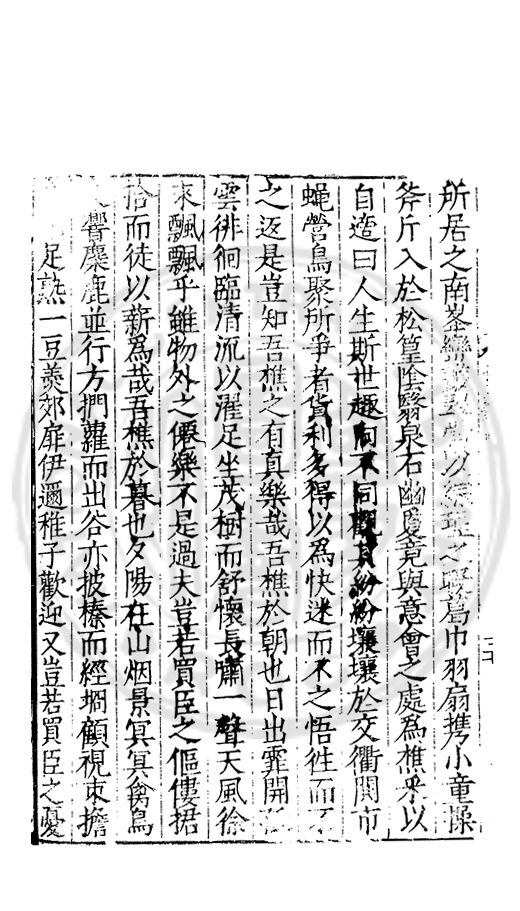 所居之南峯巒以之暇葛巾羽扇携小童操
斧斤入於松篁陰翳泉石幽夐竟與意會之處為樵乎以
自適曰人生斯世趣向不同觀其紛紛壤壤於交衢閧市
蝇營鳥聚所爭者貨利多得以為快迷而不之悟徃而不
之返是豈知吾樵之有真樂哉吾樵於朝也日出霏開
雲徘徊臨清流以濯足坐茂樹而舒懷長嘯一聲天風徐
來飄飄乎雖物外之僊樂不是過夫豈若買臣之傴僂捃
拾而徒以薪為哉吾樵於暮也夕陽在山烟景冥冥禽鳥
響麋鹿並行方捫蘿而出谷亦披榛而經堈顧視束擔
足熟一豆羮郊扉伊邇稚子歡迎又豈若買臣之憂
二十